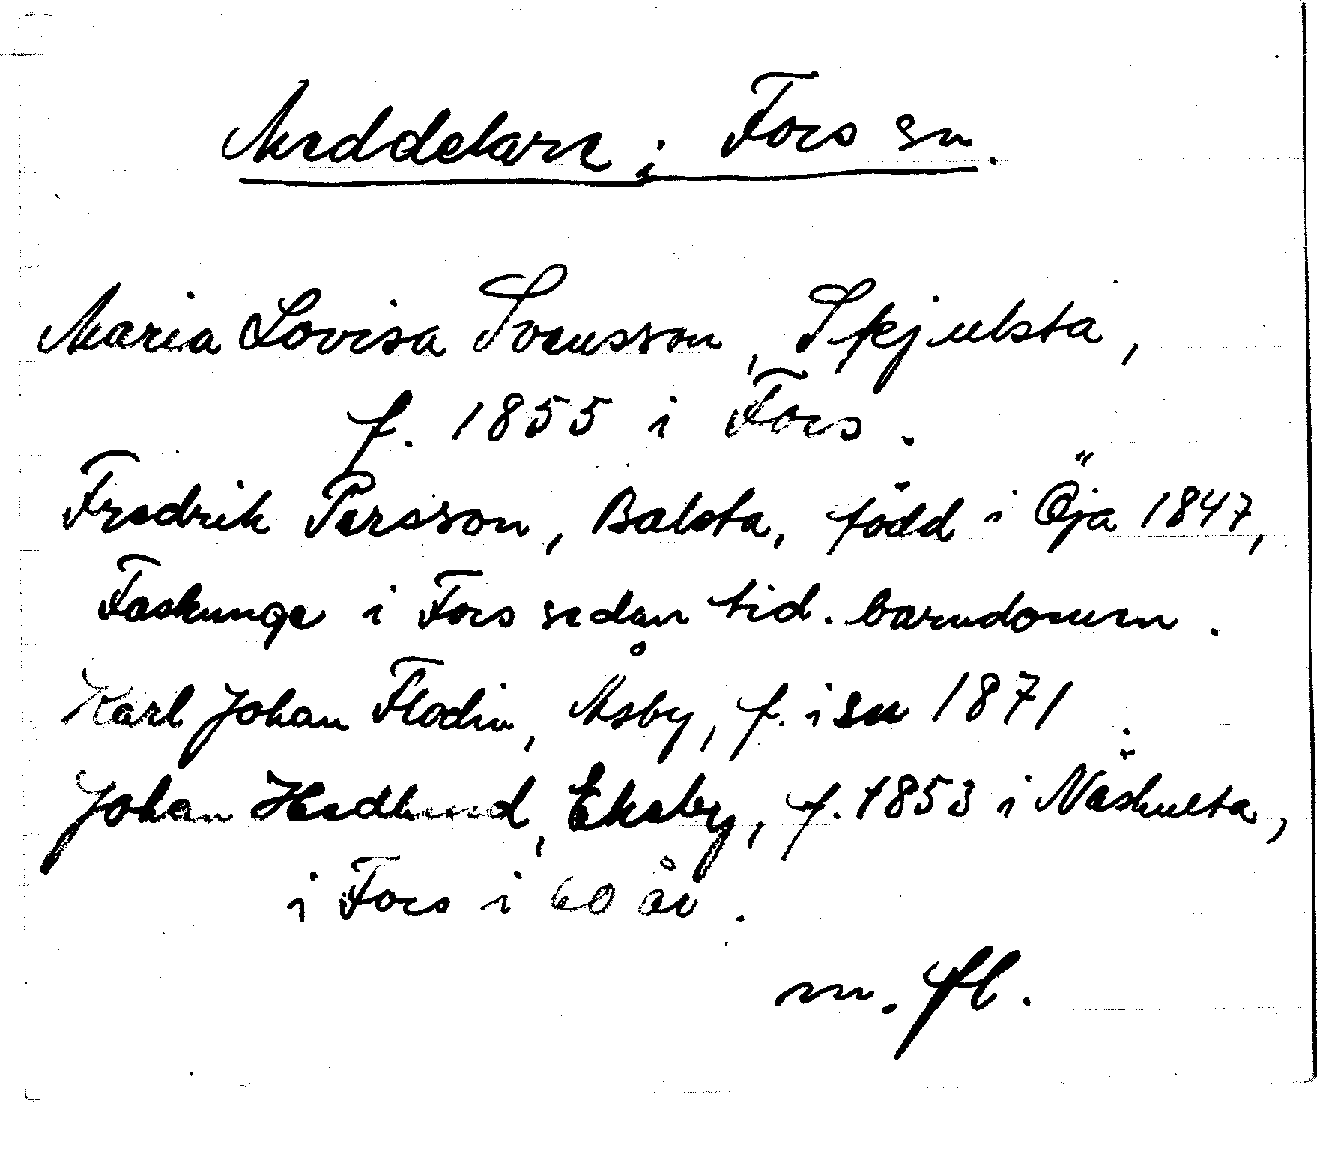 Meddelare i Fors sn.
Maria Lovisa Svensson, Skjulsta,
f. 1855 i Fors.
Fredrik Persson, Balsta, född i Öja 1847,
i Fors sedan tid. barndomen.
Karl Johan Flodin, Åsby, f. i sn 1871.
Johan Hedlund, Ekeby, f. 1853 i Näshulta,
i Fors i 60 år.
m. fl.